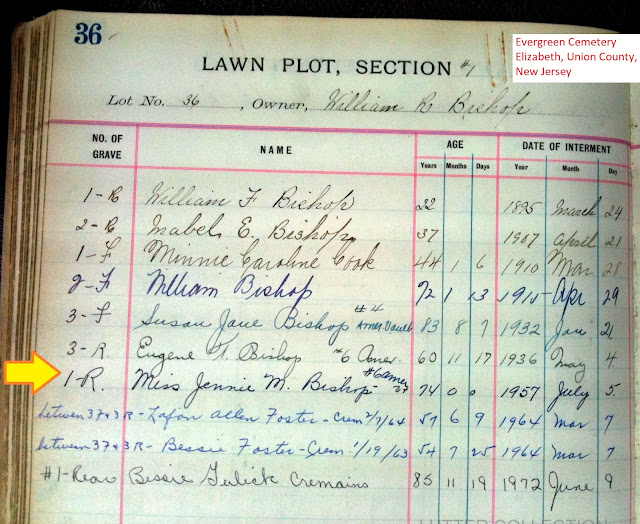 36
Evergreen Cemetery
Elizabeth, Union County,
New Jersey
LAWN PLOT, SECTION #1
Lot No. 36, Owner, William R Bishop
NO. OF GRAVE NAME AGE DATE OF INTERMENT
Years Months Days Year Month Day
1-R William F Bishop 22 1895 March 24
2-R Mabel E. Bishop 37 1907 April 21
1-F Minnie Caroline Cook 44 1 6 1910 Mar 28
2-F William Bishop 72 1 13 1911 Apr 29
3-F Susan Jane Bishop #4 83 8 7 1932 Jan 21
3-R. Eugene Bishop #6 Amer. 60 11 17 1936 May 4
1-R. Miss Jennie M. Bishop #6 Amer 74 0 0 1957 July 5
between 37+3R - Lafon Allen Foster - Crem 2/7/64 57 6 9 1964 Mar 7
between 37+3R - Bessie Foster - Crem 1/19/63 54 7 25 1964 Mar 7
#1-Rear Bessie Gulick Cremains 85 11 19 1972 June 9